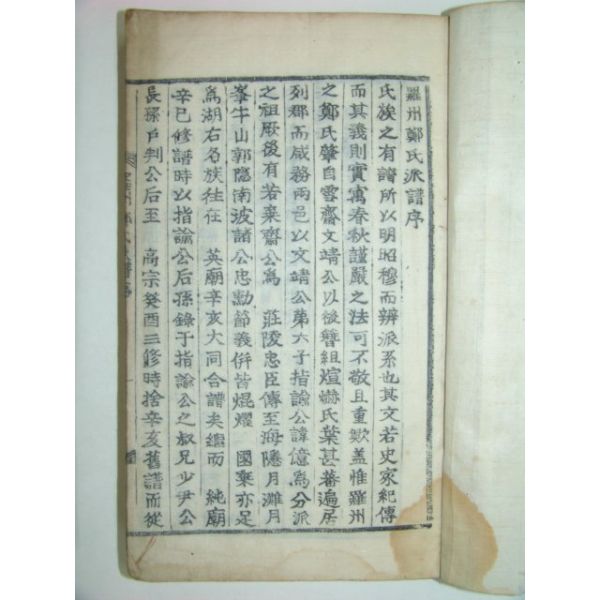 羅州鄭氏派譜序
氏族之有譜所以明昭穆而辨派系也其文若史家紀傳
而其義則實寓春秋謹嚴之法可不敬且重歟盖惟羅州
之鄭氏肇自雪齋文靖公以後簪組煊爀氏葉甚蕃遍居
列郡而咸務兩邑以文靖公第六子指諭公諱億爲分派
之祖厥後有若棄齋公爲 莊陵忠臣傳至海隱月灘月
峯牛山郭隱南波諸公忠勳節義併皆焜燿 國乘亦足
爲湖右名族徃在 英廟辛亥大同合譜矣継而 純廟
辛巳修譜時以指諭公后孫錄于指諭公之叔兄少尹公
長孫戶判公后至 高宗癸酉三修時捨辛亥舊譜而從